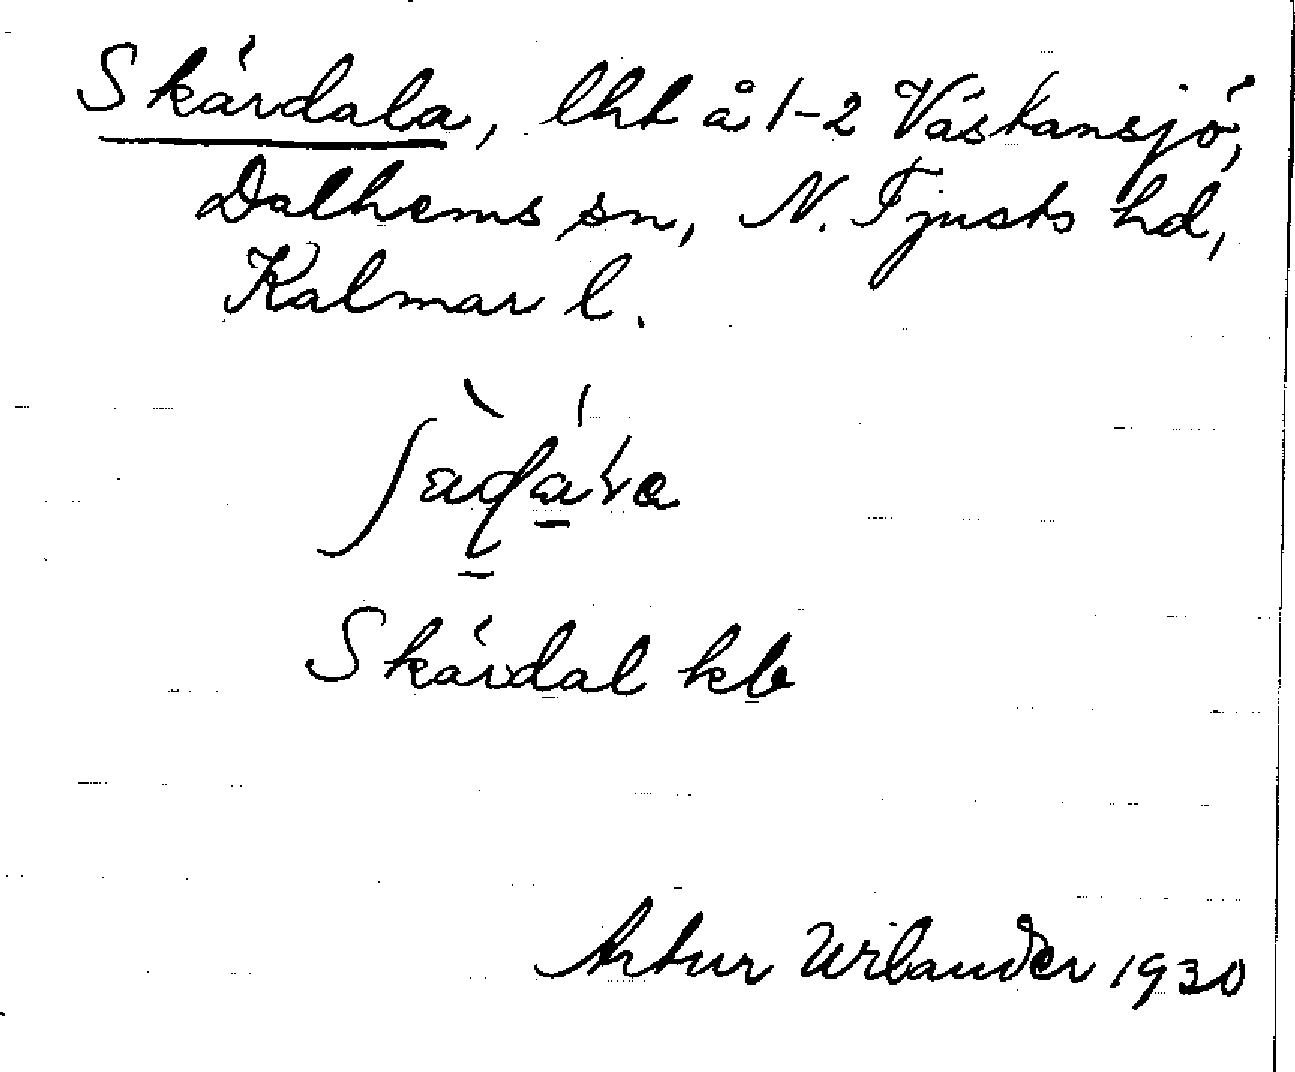 Skärdala, lht å 1-2 Väskansjö,
Dalhems sn, N. Tjusts hd,
Kalmar l.
Skärdal kb
Artur Wilander 1930